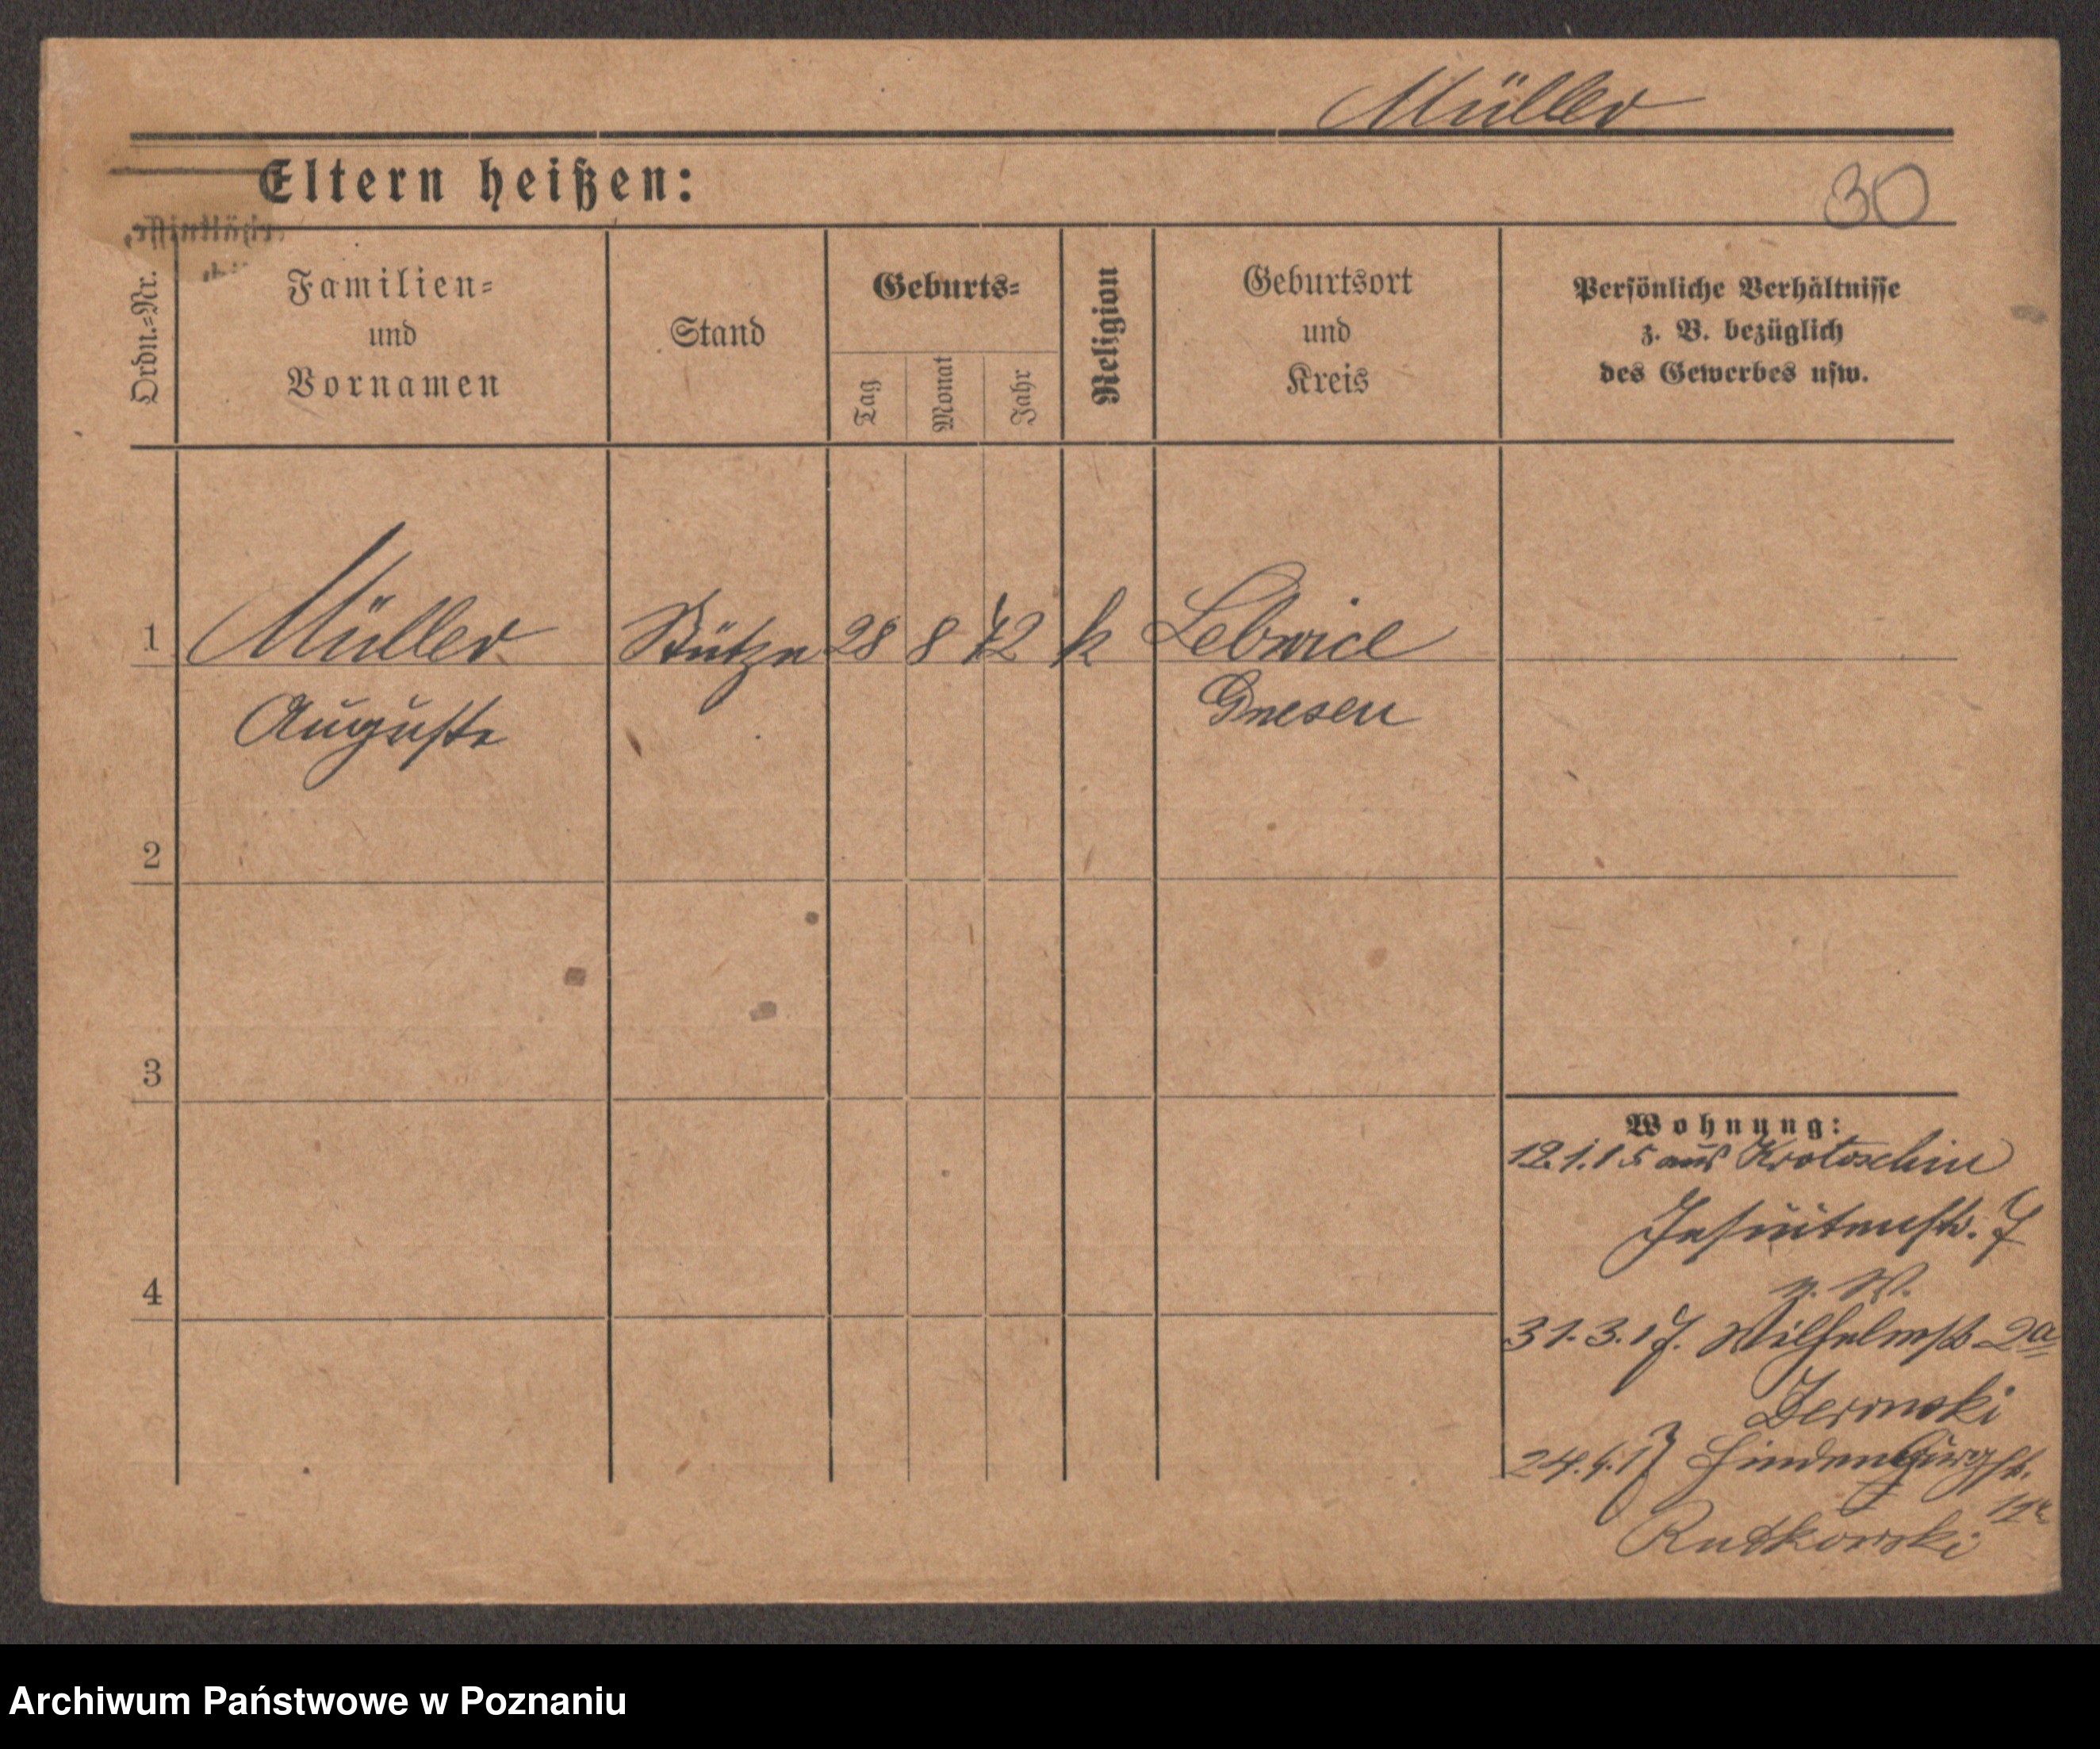 Müller
Eltern heißen:
30
Ordn.=Nr.
Familien=
und
Vornamen
Stand
Geburts=
Tag
Monat
Jahr
Religion
Geburtsort
und
Kreis
Persönliche Verhältnisse
z. B. bezüglich
des Gewerbes usw.
1
Müller
Stütze
28
8
72
k
Lebwice
Auguste
Gnesen
2
3
4
Wohnung:
12.1.15 aus Krotoschin
Jesuitenstr. 7
31.3.17. Wilhelmstr 2a
24.4.17 Hindenburgstr.
Rutkowski
Archiwum Państwowe w Poznaniu